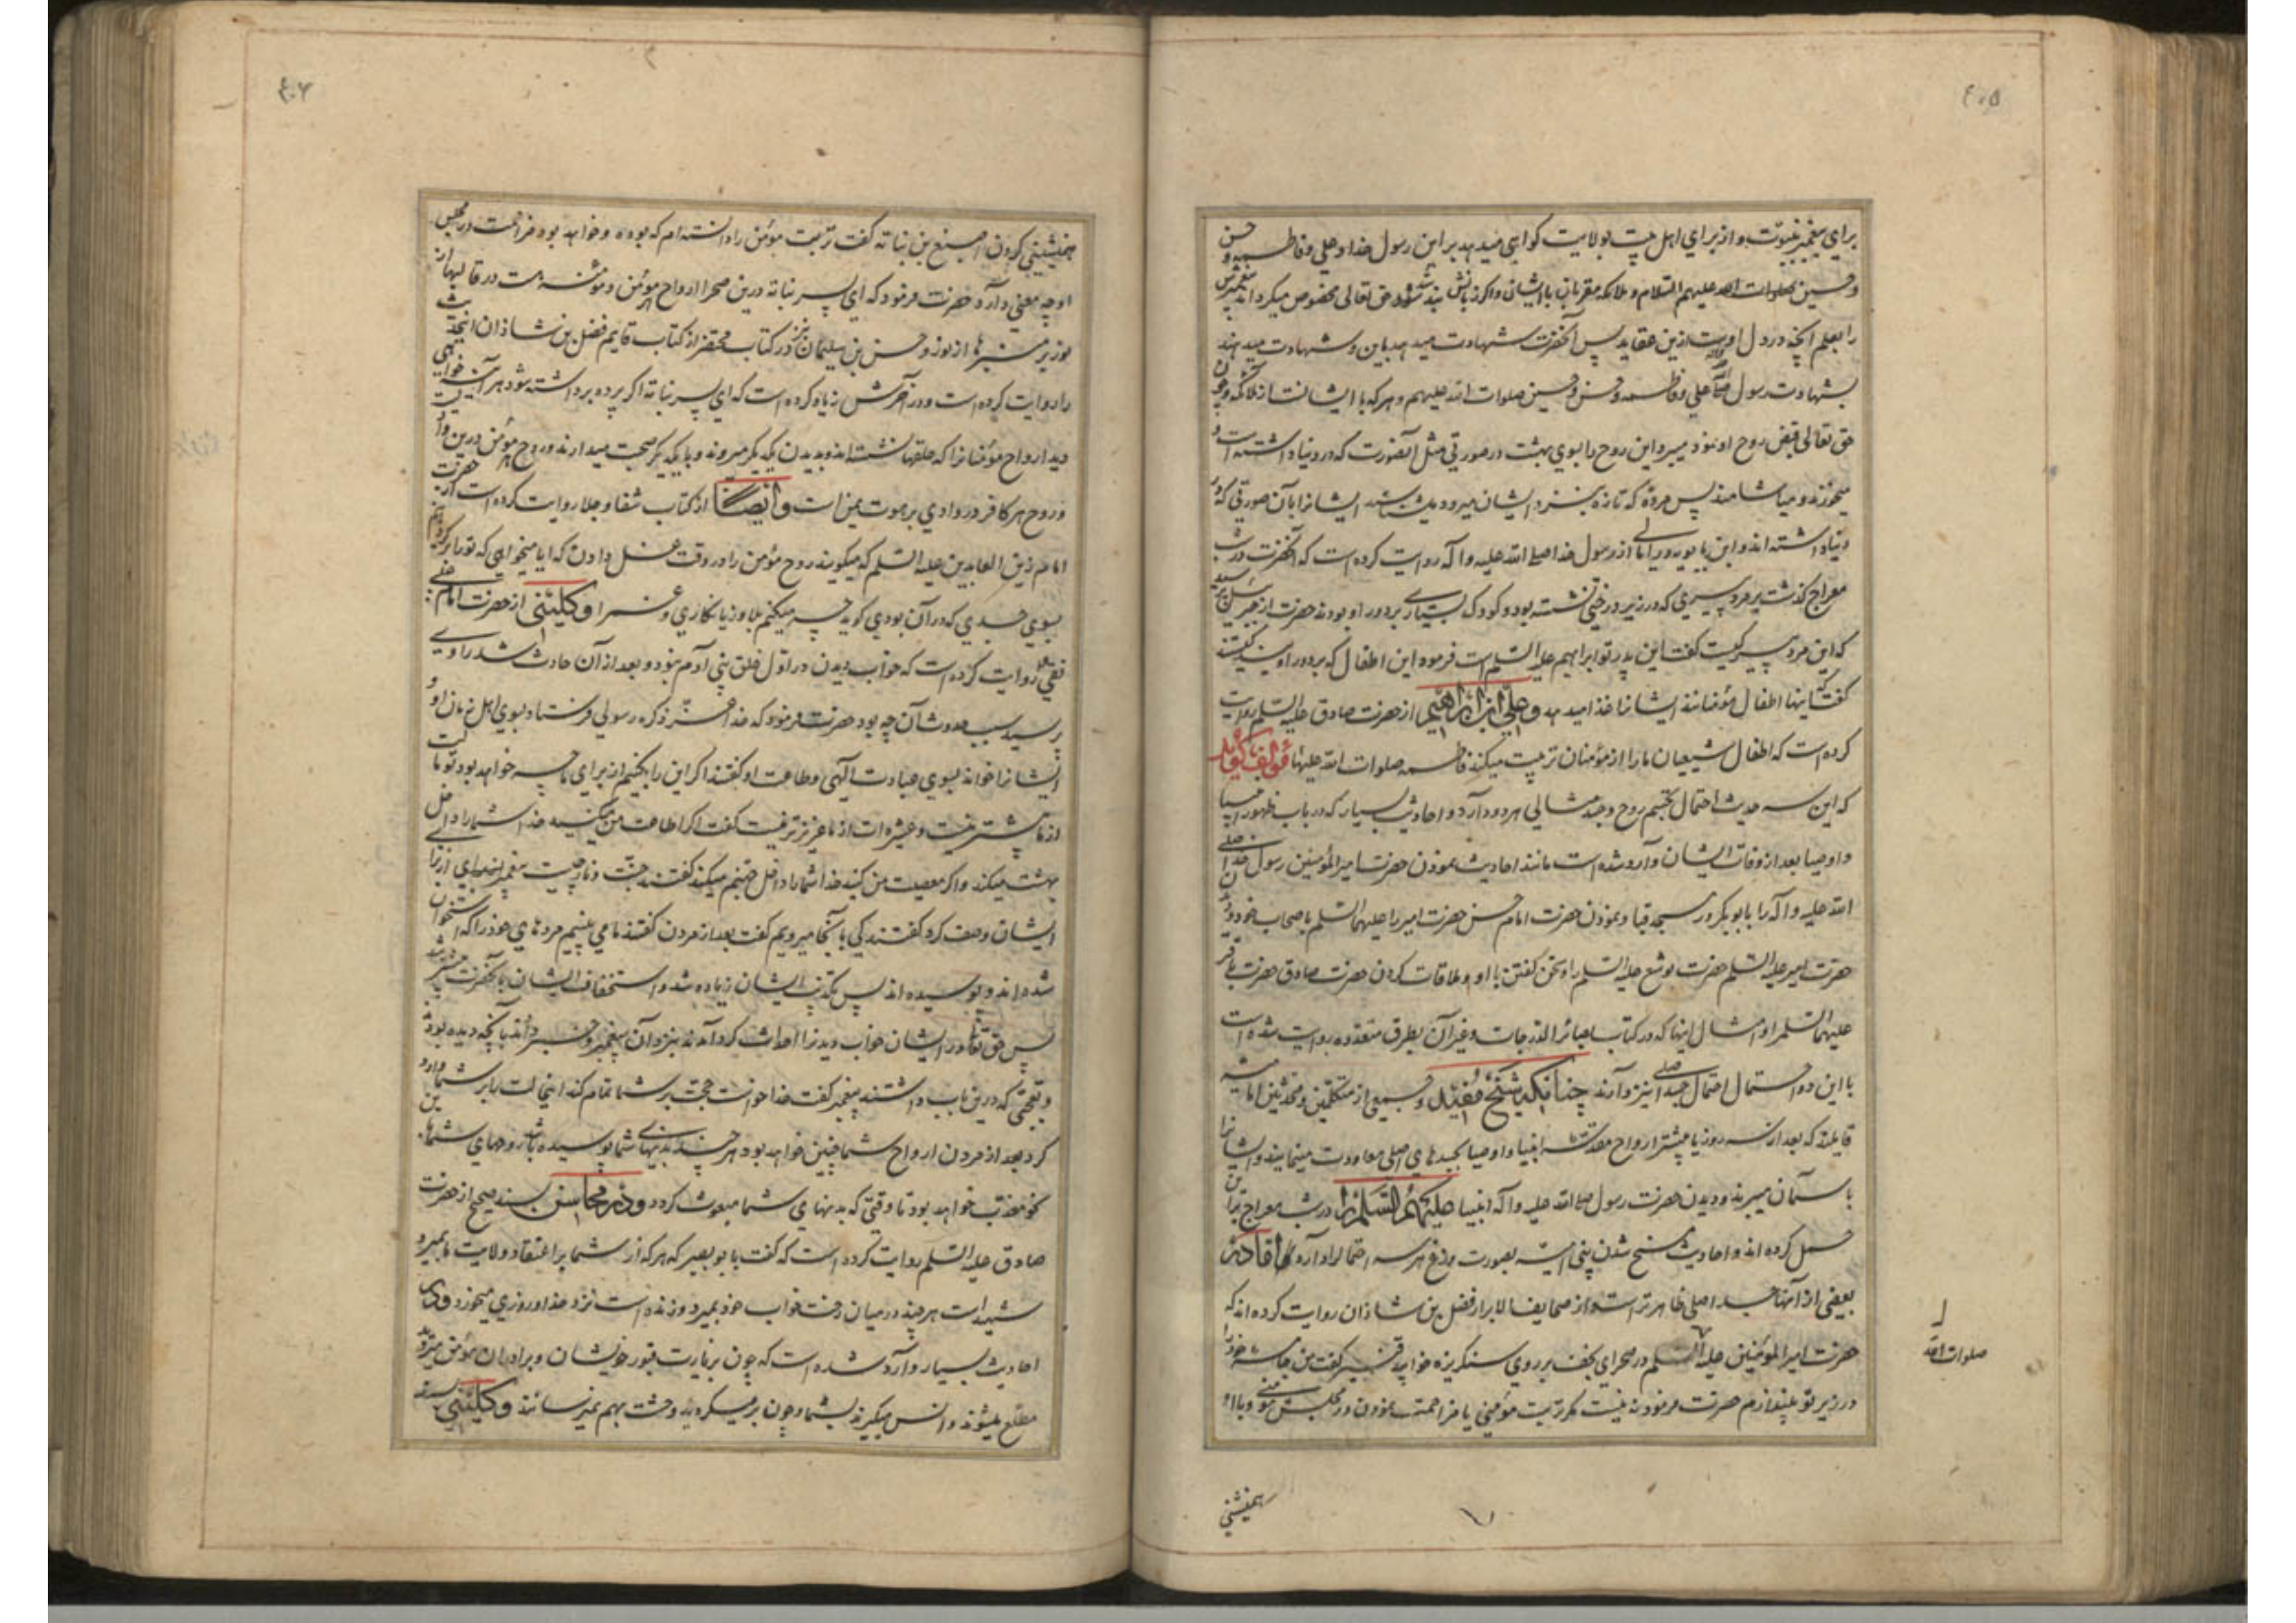 ٤٠٥
برای پیغمبر بنبوّت و از برای اهل بیت بولایت گواهی میدهد براین رسول خدا و علی و فاطمه و حسن
و حسین صلوات الله علیهم السّلام و ملائکه مقربان با ایشان و اگر زبانش بند شود حق تعالی مخصوص میگرداند پیغمبرش
را بعلم آنچه در دل اوست ازین عقاید پس آنحضرت شهادت میدهد باین و شهادت میدهند
بشهادت رسول علی و فاطمه و حسن و حسین صلوات الله علیهم و هر که با ایشانست از ملائکه و چون
حق تعالی قبض روح او نمود میبرد این روح را بسوی بهشت در صورتی مثل آنصورت که در دنیا داشته است و
میخورند و میاشامند پس مرده که تازه بنزد ایشان میرود میشناسد ایشانرا بآن صورتی که در
دنیا داشته اند و ابن بابویه در امالی از رسول خدا صلی الله علیه و آله روایت کرده است که آنحضرت در شب
معراج گذشت بر مرد پیری که در زیر درختی نشسته بود و کودک بسیاری بر دور او بودند حضرت از جبرئیل پرسید
که این مرد پیر کیست گفت این پدر تو ابراهیم علیه السّلم است فرمود این اطفال که بر دور اویند کیستند
گفت که اینها اطفال مؤمنانند ایشانرا غذا میدهد و علیّ ابن ابراهیم از حضرت صادق علیه السّلم روایت
کرده است که اطفال شیعیان ما را از مؤمنان تربیت میکند فاطمه صلوات الله علیها مؤلف گوید
که این سه حدیث احتمال تجسم روح و جسد مثالی هر دو دارد و احادیث بسیار که در باب ظهور انبیا
و اوصیا بعد از وفات ایشان وارد شده است مانند احادیث نمودن حضرت امیر المؤمنین رسول خدا صلی
الله علیه و آله را بابوبکر در مسجد قبا و نمودن حضرت امام حسن حضرت امیر را علیهما السّلم باصحاب خود و دیدن
حضرت امیر علیه السّلم حضرت یوشع علیه السّلم را و سخن گفتن با او و ملاقات کردن حضرت صادق حضرت باقر
علیهما السّلم را و امثال اینها که در کتاب بصائر الدرجات و غیر آن بطرق متعدده روایت شده است
با این دو احتمال احتمال جسد اصلی نیز دارند چنانکه شیخ مفید و جمعی از متکلمین و محدثین امامیه
قایلند که بعد از سه روز یا بیشتر ارواح مقدسه انبیا و اوصیا بجسدهای اصلی معاودت مینمایند و ایشانرا
باسمان میبرند و دیدن حضرت رسول صلی الله علیه و آله انبیا علیهم السّلم را در شب معراج براین
حمل کرده اند و احادیث مسخ شدن بنی امیّه بصورت وزغ هر سه احتمال را دارد امّا در
بعضی از آنها جسد اصلی ظاهر تر است و از صحایف الابرار فضل بن شاذان روایت کرده اند که
حضرت امیر المؤمنین علیه السّلم در صحرای نجف بر روی سنگریزه خوابید قنبر گفت من جامه خود را
در زیر تو بیندازم حضرت فرمود نه نیست مگر تربت مؤمنی یا مزاحمت نمودن در مجلس مؤمنی و با او
صلوات الله
همنشینی
٤٠٦
همنشینی کردن اصبغ بن نباته گفت تربت مؤمن را دانسته ام که بوده و خواهد بود مزاحمت در مجلس
او چه معنی دارد حضرت فرمود که ای پسر نباته درین صحرا ارواح هر مؤمن و مؤمنه هست در قالبها از
نور بر منبرها از نور و حسن بن سلیمان نیز در کتاب محتضر از کتاب قایم فضل بن شاذان این حدیث
را روایت کرده است و در آخرش زیاد کرده است که ای پسر نباته اگر پرده برداشته شود هر آینه خواهی
دید ارواح مؤمنانرا که حلقها نشسته اند و بدیدن یکدیگر میروند و با یکدیگر صحبت میدارند و روح هر مؤمن درین وادیست
و روح هر کافر در وادی برهوت یمن است و ایضاً از کتاب شفا و جلا روایت کرده است از حضرت
امام زین العابدین علیه السّلم که میگویند روح مؤمن را در وقت غسل دادن که ایا میخواهی که تو را برگردانیم
بسوی جسدی که در آن بودی گوید چه میکنم بلا و زیانکاری و غم را و کلینی از حضرت امام علی
نقی روایت کرده است که خواب دیدن در اوّل خلق بنی آدم نبود و بعد از آن حادث شد راوی
پرسید سبب حدوث آن چه بود حضرت فرمود که خدا عزّ ذکره رسولی فرستاد بسوی اهل زمان او و
ایشانرا خواند بسوی عبادت الهی و طاعت او گفتند اگر این را بکنیم از برای ما چه خواهد بود تو مالت
از ما بیشتر نیست و عشیره ات از ما عزیز تر نیست گفت اگر اطاعت من میکنید خدا شما را داخل
بهشت میکند و اگر معصیت من کنید خدا شما را داخل جهنم میکند گفتند جنّت و نار چیست پیغمبر از برای
ایشان وصف کرد گفتند کی بآنجا میرویم گفت بعد از مردن گفتند ما می بینیم مردهای خود را که استخوان
شده اند و پوسیده اند پس تکذیب ایشان زیاده شد و استخفاف ایشان بآنحضرت بیشتر شد
پس حق تعالی در ایشان خواب دیدنرا احداث کرد آمدند بنزد آن پیغمبر و خبر دادند بآنچه دیده بودند
و تعجبی که درین باب داشتند پیغمبر گفت خدا خواست حجّت بر شما تمام کند اینحالت را بر شما وارد
کرد بعد از مردن ارواح شما چنین خواهد بود هر چند بدنهای شما پوسیده باشد روحهای شما باین
نحو معذب خواهد بود تا وقتی که بدنهای شما مبعوث گردد و در محاسن بسند صحیح از حضرت
صادق علیه السّلم روایت کرده است که گفت بابوبصیر که هر که از شما بر اعتقاد ولایت ما بمیرد
شهید است هر چند در میان رخت خواب خود بمیرد و زنده است نزد خدا و روزی میخورد و در
احادیث بسیار وارد شده است که چون بزیارت قبور خویشان و برادران مؤمن میروید
مطّلع میشوند و انس میگیرند بشما و چون بر میگردید وحشت بهم میرسانند و کلینی بسند